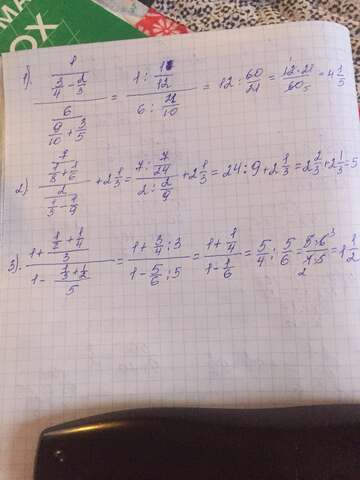 MA
OX
1). 1/(3/4 - 2/3) / 6/(9/10 + 3/5) = (1 : 1/12) / (6 : 21/10) = 12 · 60/21 = 12·21/60 5 = 4 1/5
2) 7/(1/8 + 1/6) / 2/(1/3 - 1/9) + 2 1/3 = (7 : 7/24) / (2 : 2/9) + 2 1/3 = 24 : 9 + 2 1/3 = 2 2/3 + 2 1/3 = 5
3). (1 + (1/2 + 1/4)/3) / (1 - (1/3 + 1/2)/5) = (1 + 3/4 : 3) / (1 - 5/6 : 5) = (1 + 1/4) / (1 - 1/6) = 5/4 : 5/6 = 5·6 3/4·5 2 = 1 1/2